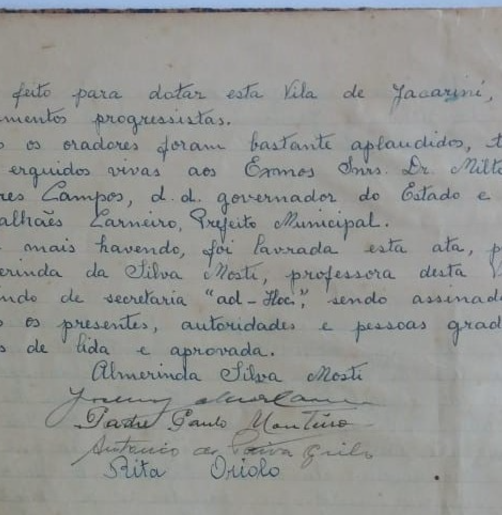 feito para dotar esta Vila de Jacariní,
mentos progressistas.
os oradores foram bastante aplaudidos, t
erguidos vivas aos Exmos Snrs. Dr. Milt
res Campos, d. d. governador do Estado e
alhães Carneiro, Prefeito Municipal.
mais havendo, foi lavrada esta ata, p
erinda da Silva Mosti, professora desta V
ndo de secretaria "ad-Hoc", sendo assinad
os presentes, autoridades e pessoas grad
s de lida e aprovada.
Almerinda Silva Mosti
Padre Paulo Monteiro
Antonio de Paiva Grilo
Rita Oriolo